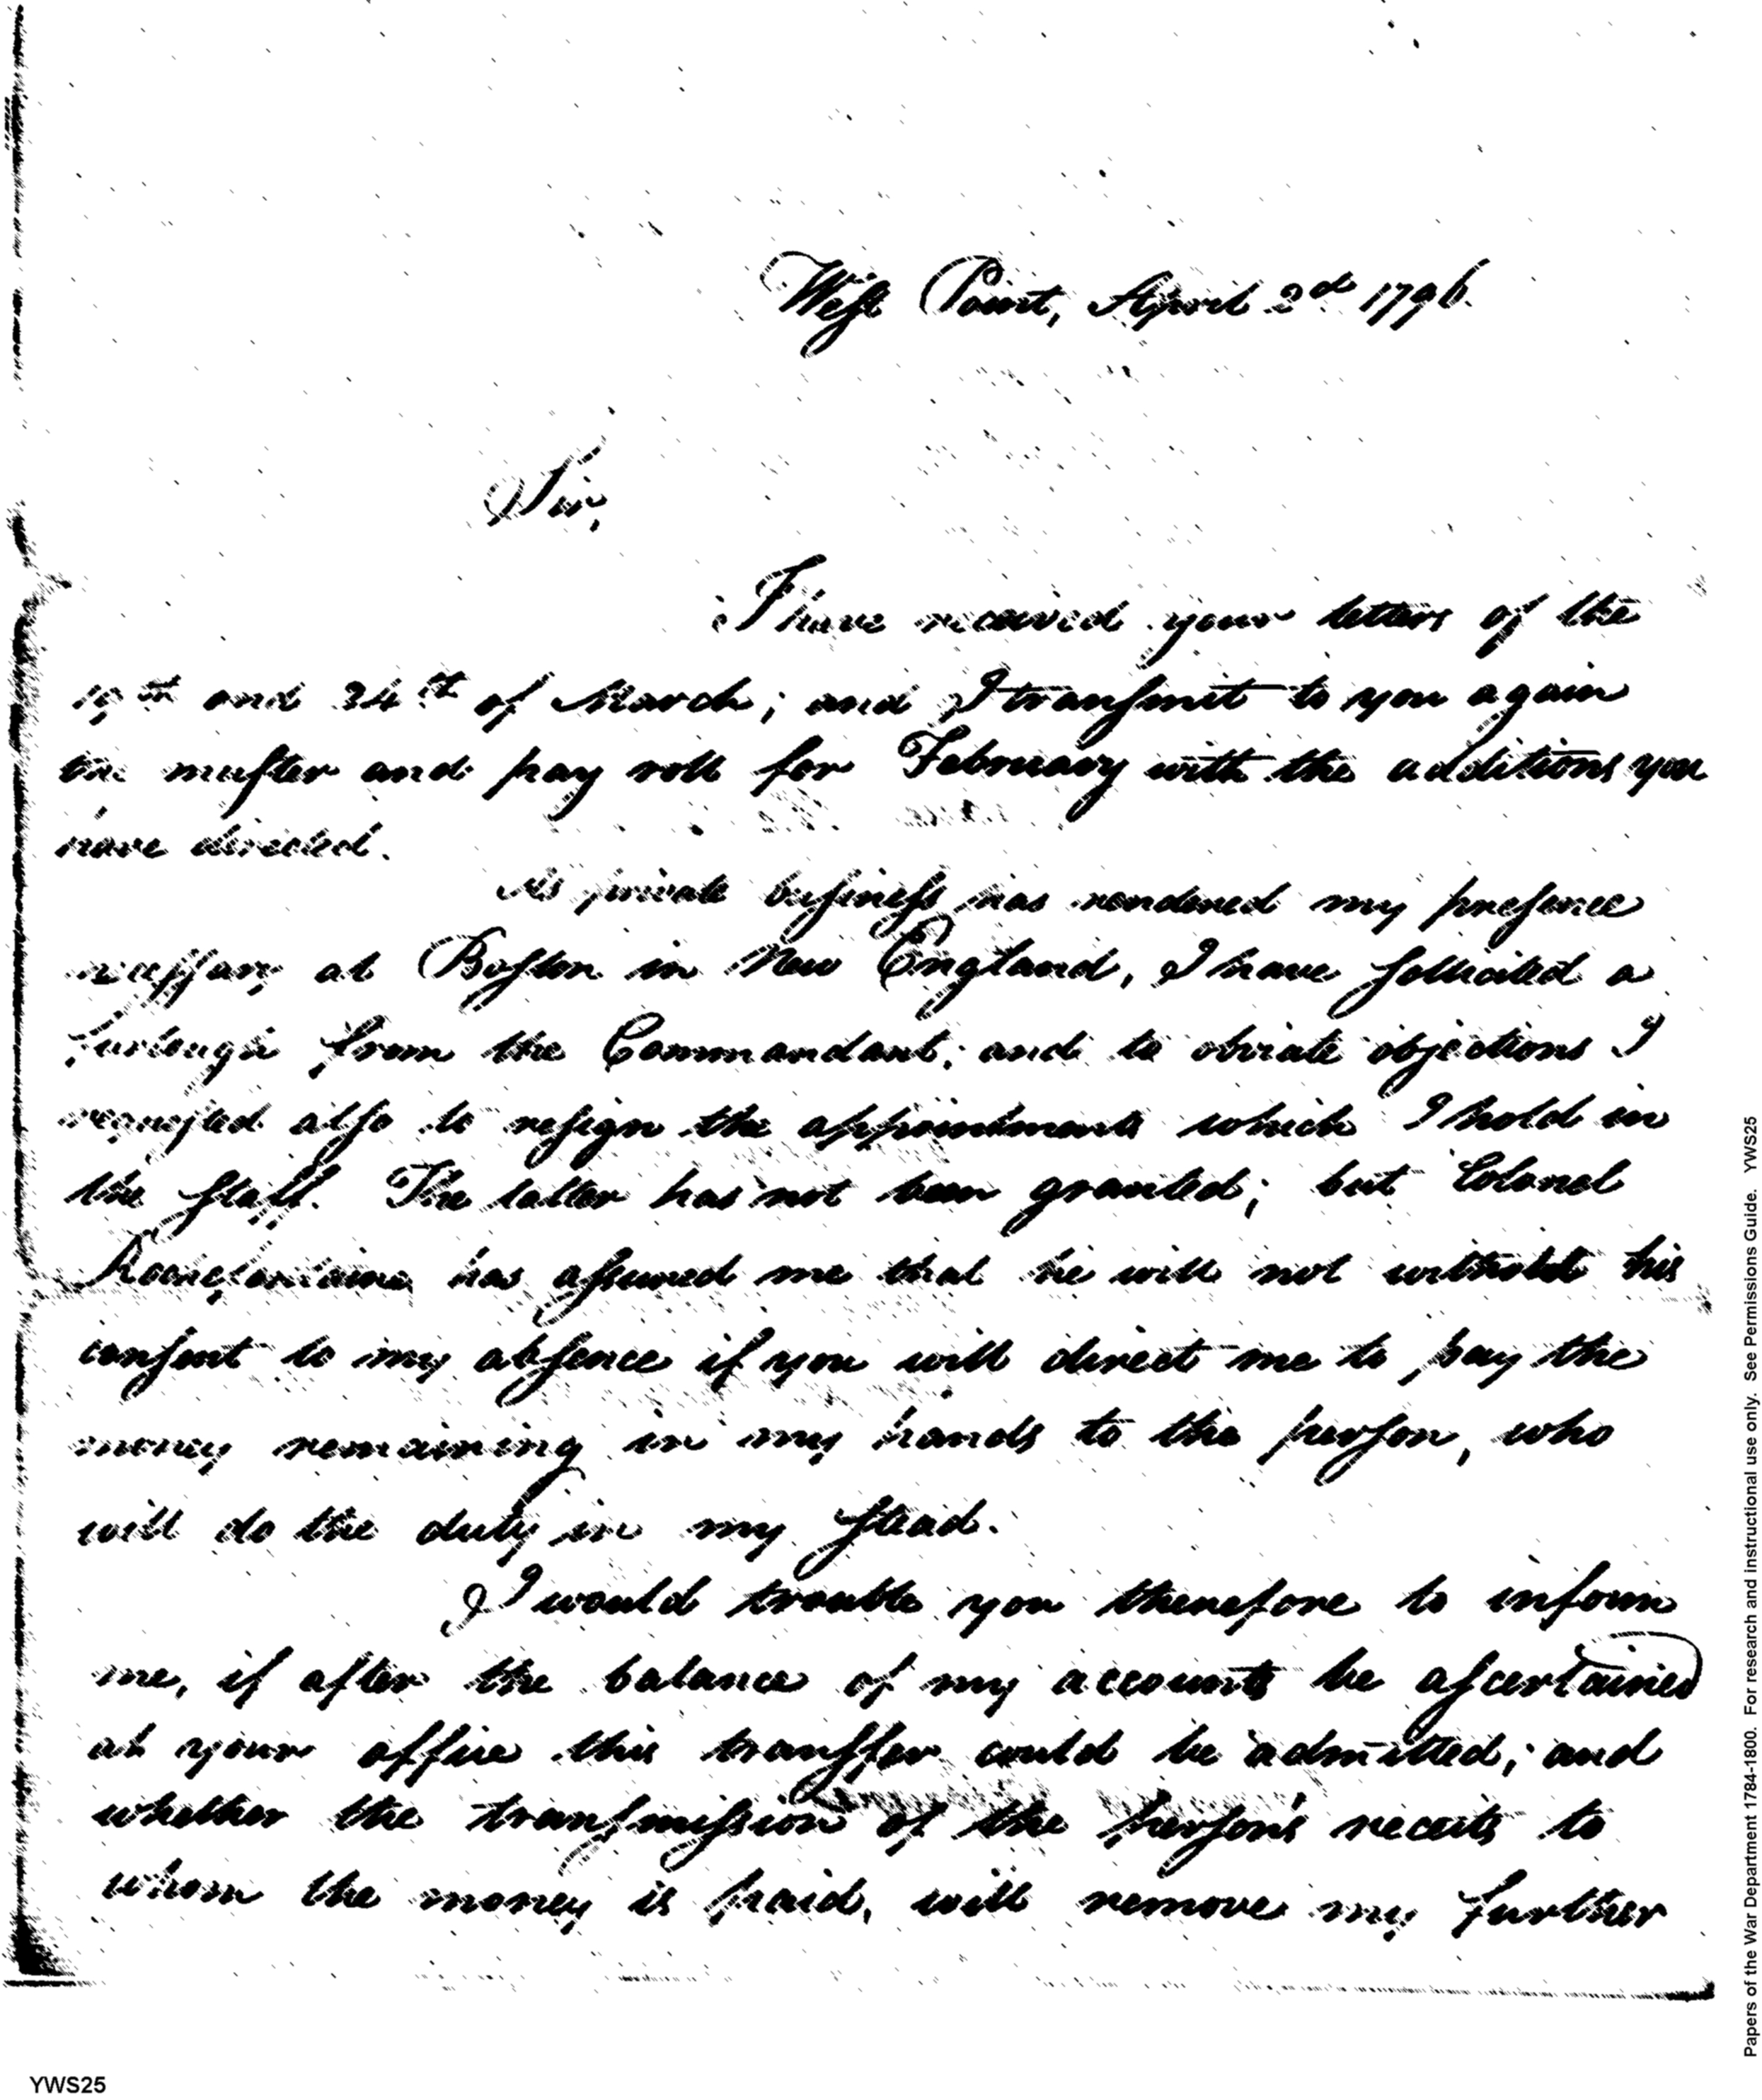 West Point, April 2d 1796.
Sir,
I have received your letters of the
19th and 24th of March; and I transmit to you again
the muster and pay roll for February with the additions you
have directed.
As private business has rendered my presence
necessary at Boston in New England, I have sollicited a
furlough from the Commandant; and to obviate objections I
requested also to resign the appointments which I hold in
the staff. The latter has not been granted; but Colonel
Rochefontaine has assured me that he will not withold his
consent to my absence if you will direct me to pay the
money remaining in my hands to the person, who
will do the duty in my stead.
I would trouble you therefore to inform
me, if after the balance of my accounts be ascertained
at your office this transfer could be admitted; and
whether the transmission of the person's receits to
whom the money is paid, will remove my further
YWS25
Papers of the War Department 1784-1800. For research and instructional use only. See Permissions Guide. YWS25